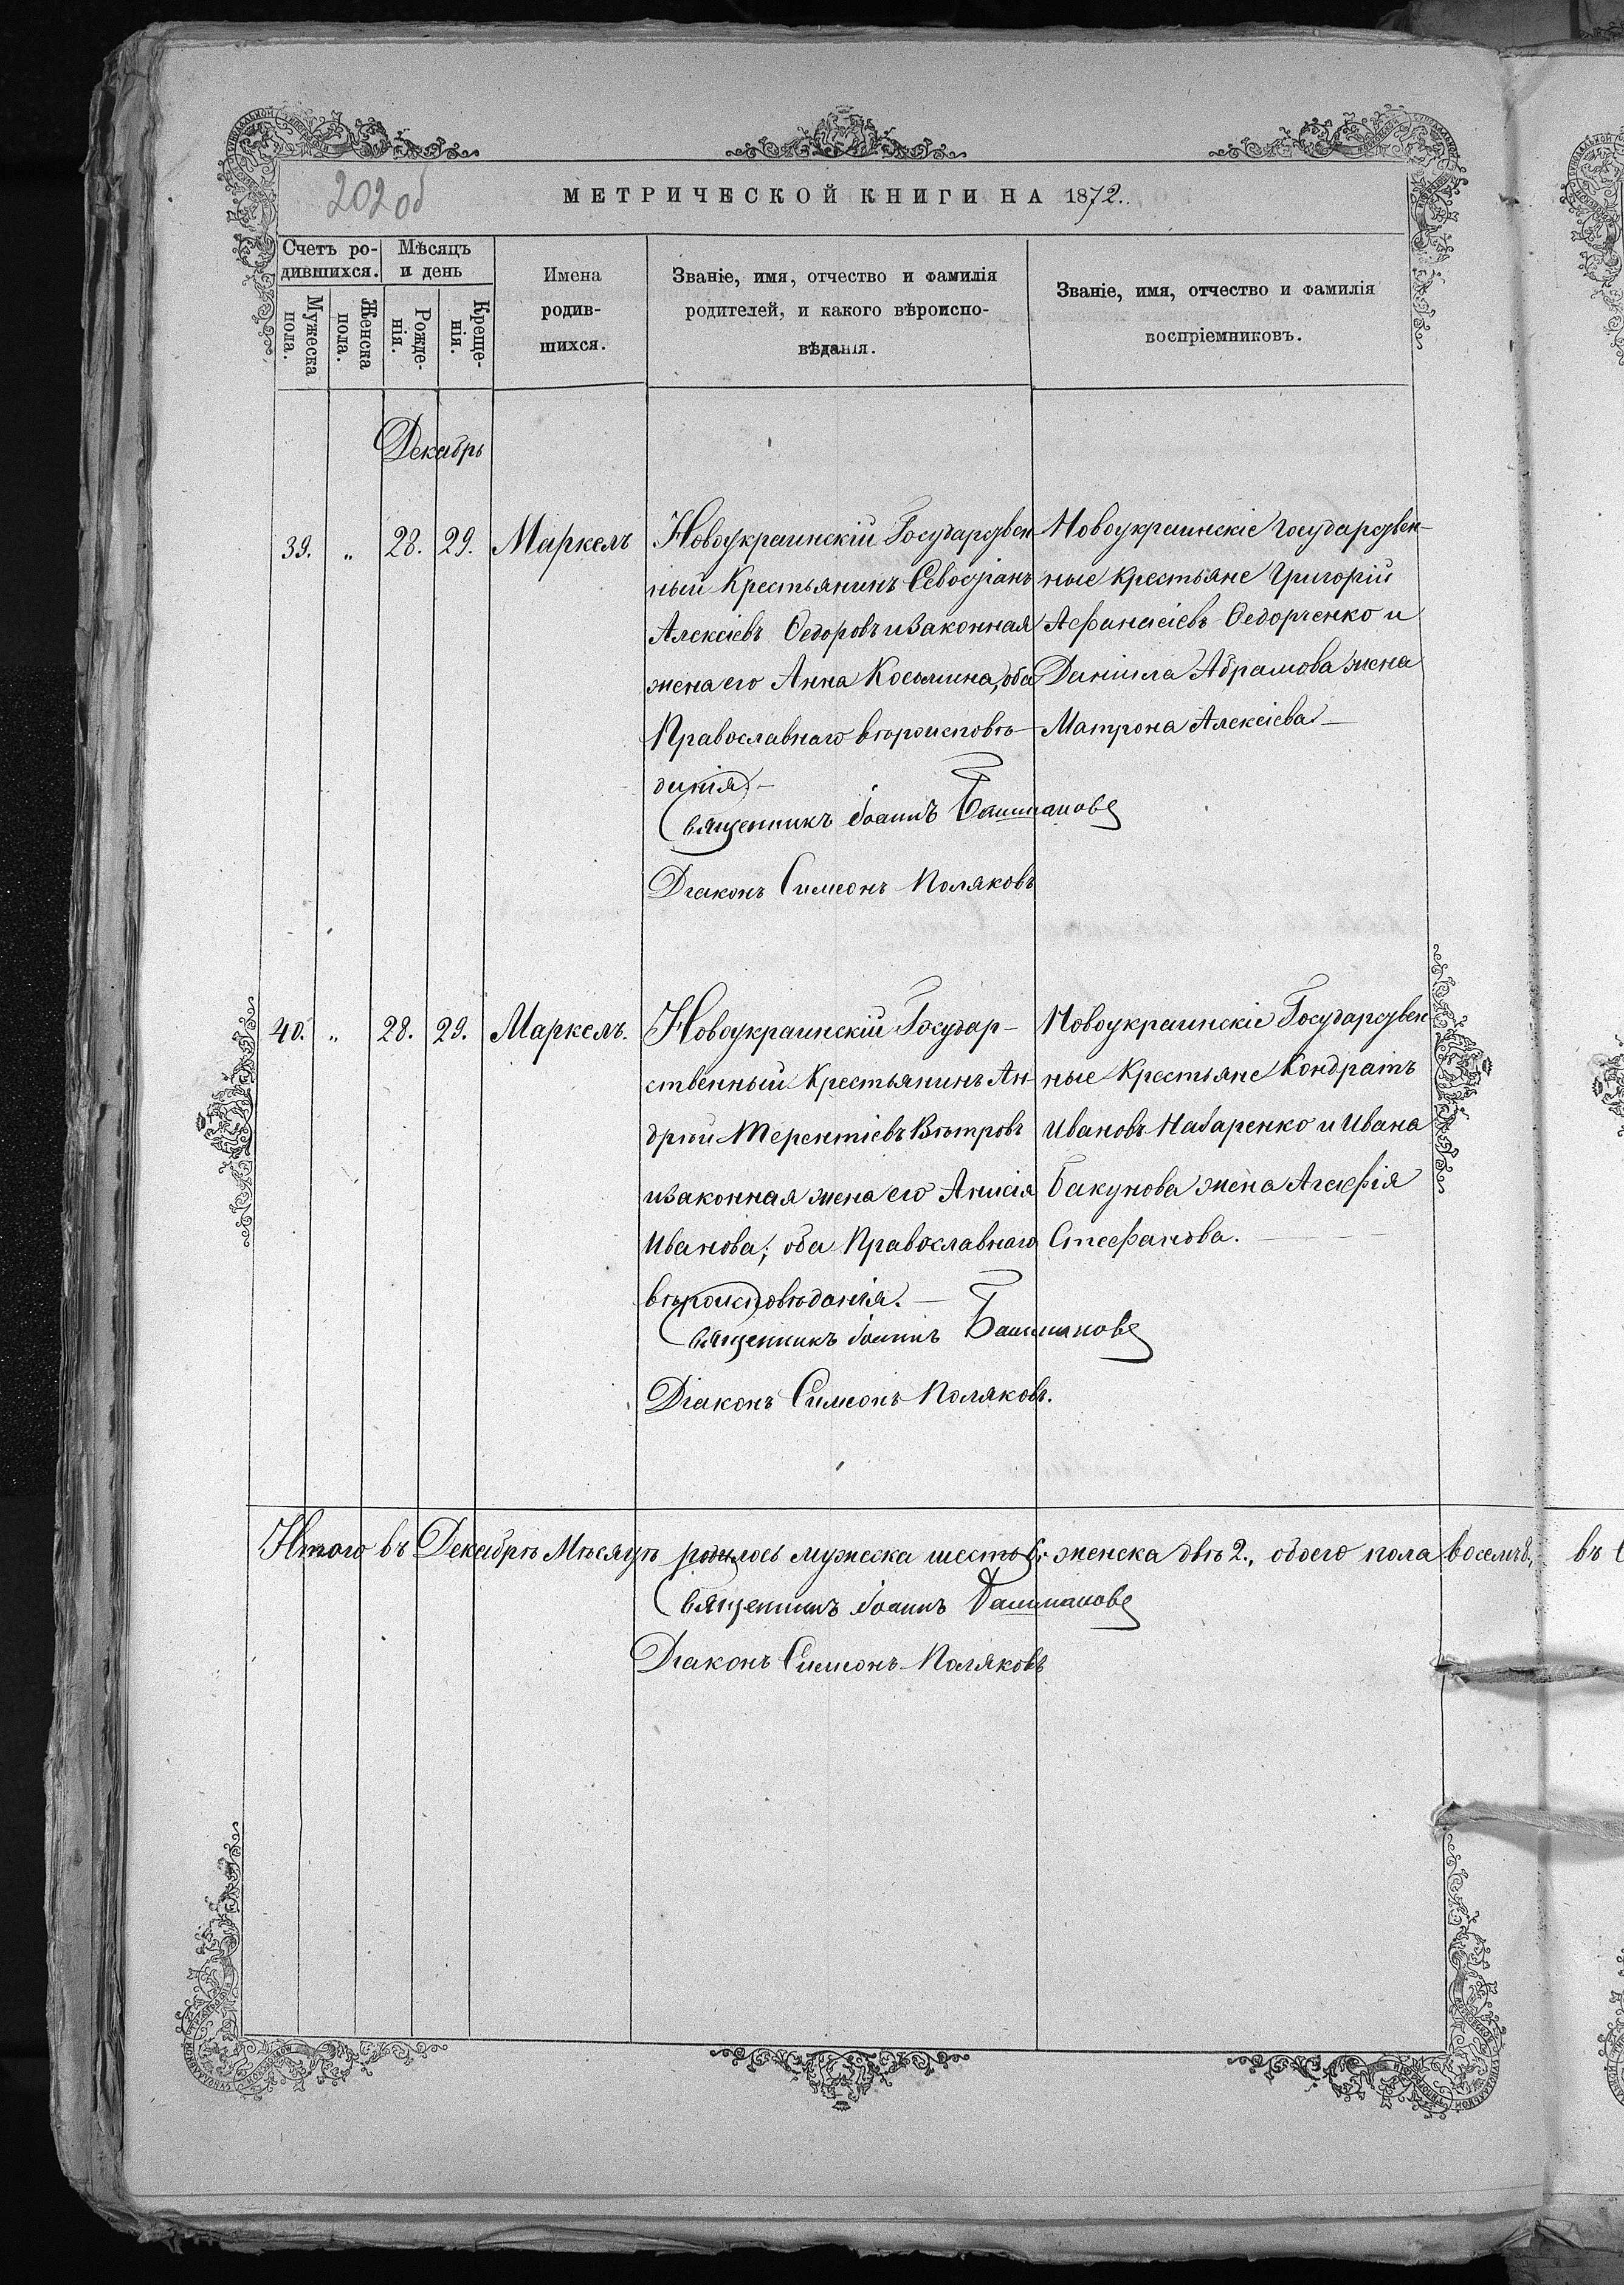 202 об
МЕТРИЧЕСКОЙ КНИГИ НА 1872.
Счетъ ро-
дившихся.
Мужеска пола.
Женска пола.
Мѣсяцъ
и день
Рожде-
нія.
Креще-
нія.
Имена
родив-
шихся.
Званіе, имя, отчество и фамилія
родителей, и какого вѣроиспо-
вѣданія.
Званіе, имя, отчество и фамилія
воспріемниковъ.
Декабрь
39. „ 28. 29. Маркелъ
Новоукраинскій Государствен
ный Крестьянинъ Севостіанъ
Алексіевъ Ѳедоровъ и законная
жена его Анна Косьмина, оба
Православнаго вѣроисповѣ-
данія.-
Священникъ Іоаннъ Башмаковъ
Діаконъ Симеонъ Поляковъ
Новоукраинскіе Государствен-
ные крестьяне Григорій
Афанасіевъ Ѳедорченко и
Даніила Абрамова жена
Матрона Алексіева.-
40. „ 28. 29. Маркелъ.
Новоукраинскій Государ-
ственный Крестьянинъ Ан-
дрей Терентіевъ Вѣтровъ
и законная жена его Анисія
Иванова; оба Православнаго
вѣроисповѣданія.-
Священникъ Іоаннъ Башмаковъ
Діаконъ Симеонъ Поляковъ.
Новоукраинскіе Государствен
ные Крестьяне Кондратъ
Ивановъ Назаренко и Ивана
Бакунова жена Агафія
Стефанова.
Итого въ Декабрѣ Мѣсяцѣ родилось мужеска шесть 6; женска двѣ 2., обоего пола восемь 8,
Священникъ Іоаннъ Башмаковъ
Діаконъ Симеонъ Поляковъ
въ